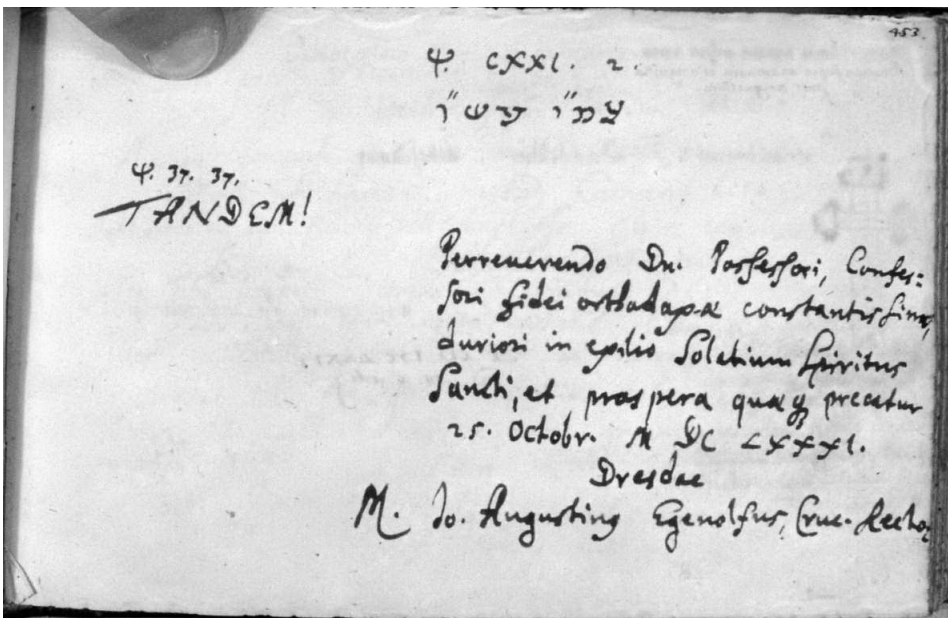 453.
Ψ. CXXI. 2.
Ψ. 37. 37.
TANDEM!
Perreverendo Dn. Possessori, Confes=
sori fidei orthodoxæ constantissimo
duriori in exilio Solatium Spiritus
Sancti, et prospera quæq; precatur
25. Octobr. M DC LXXXI.
Dresdae
M. Jo. Augustinus Egenolfus, Cruc. Rector